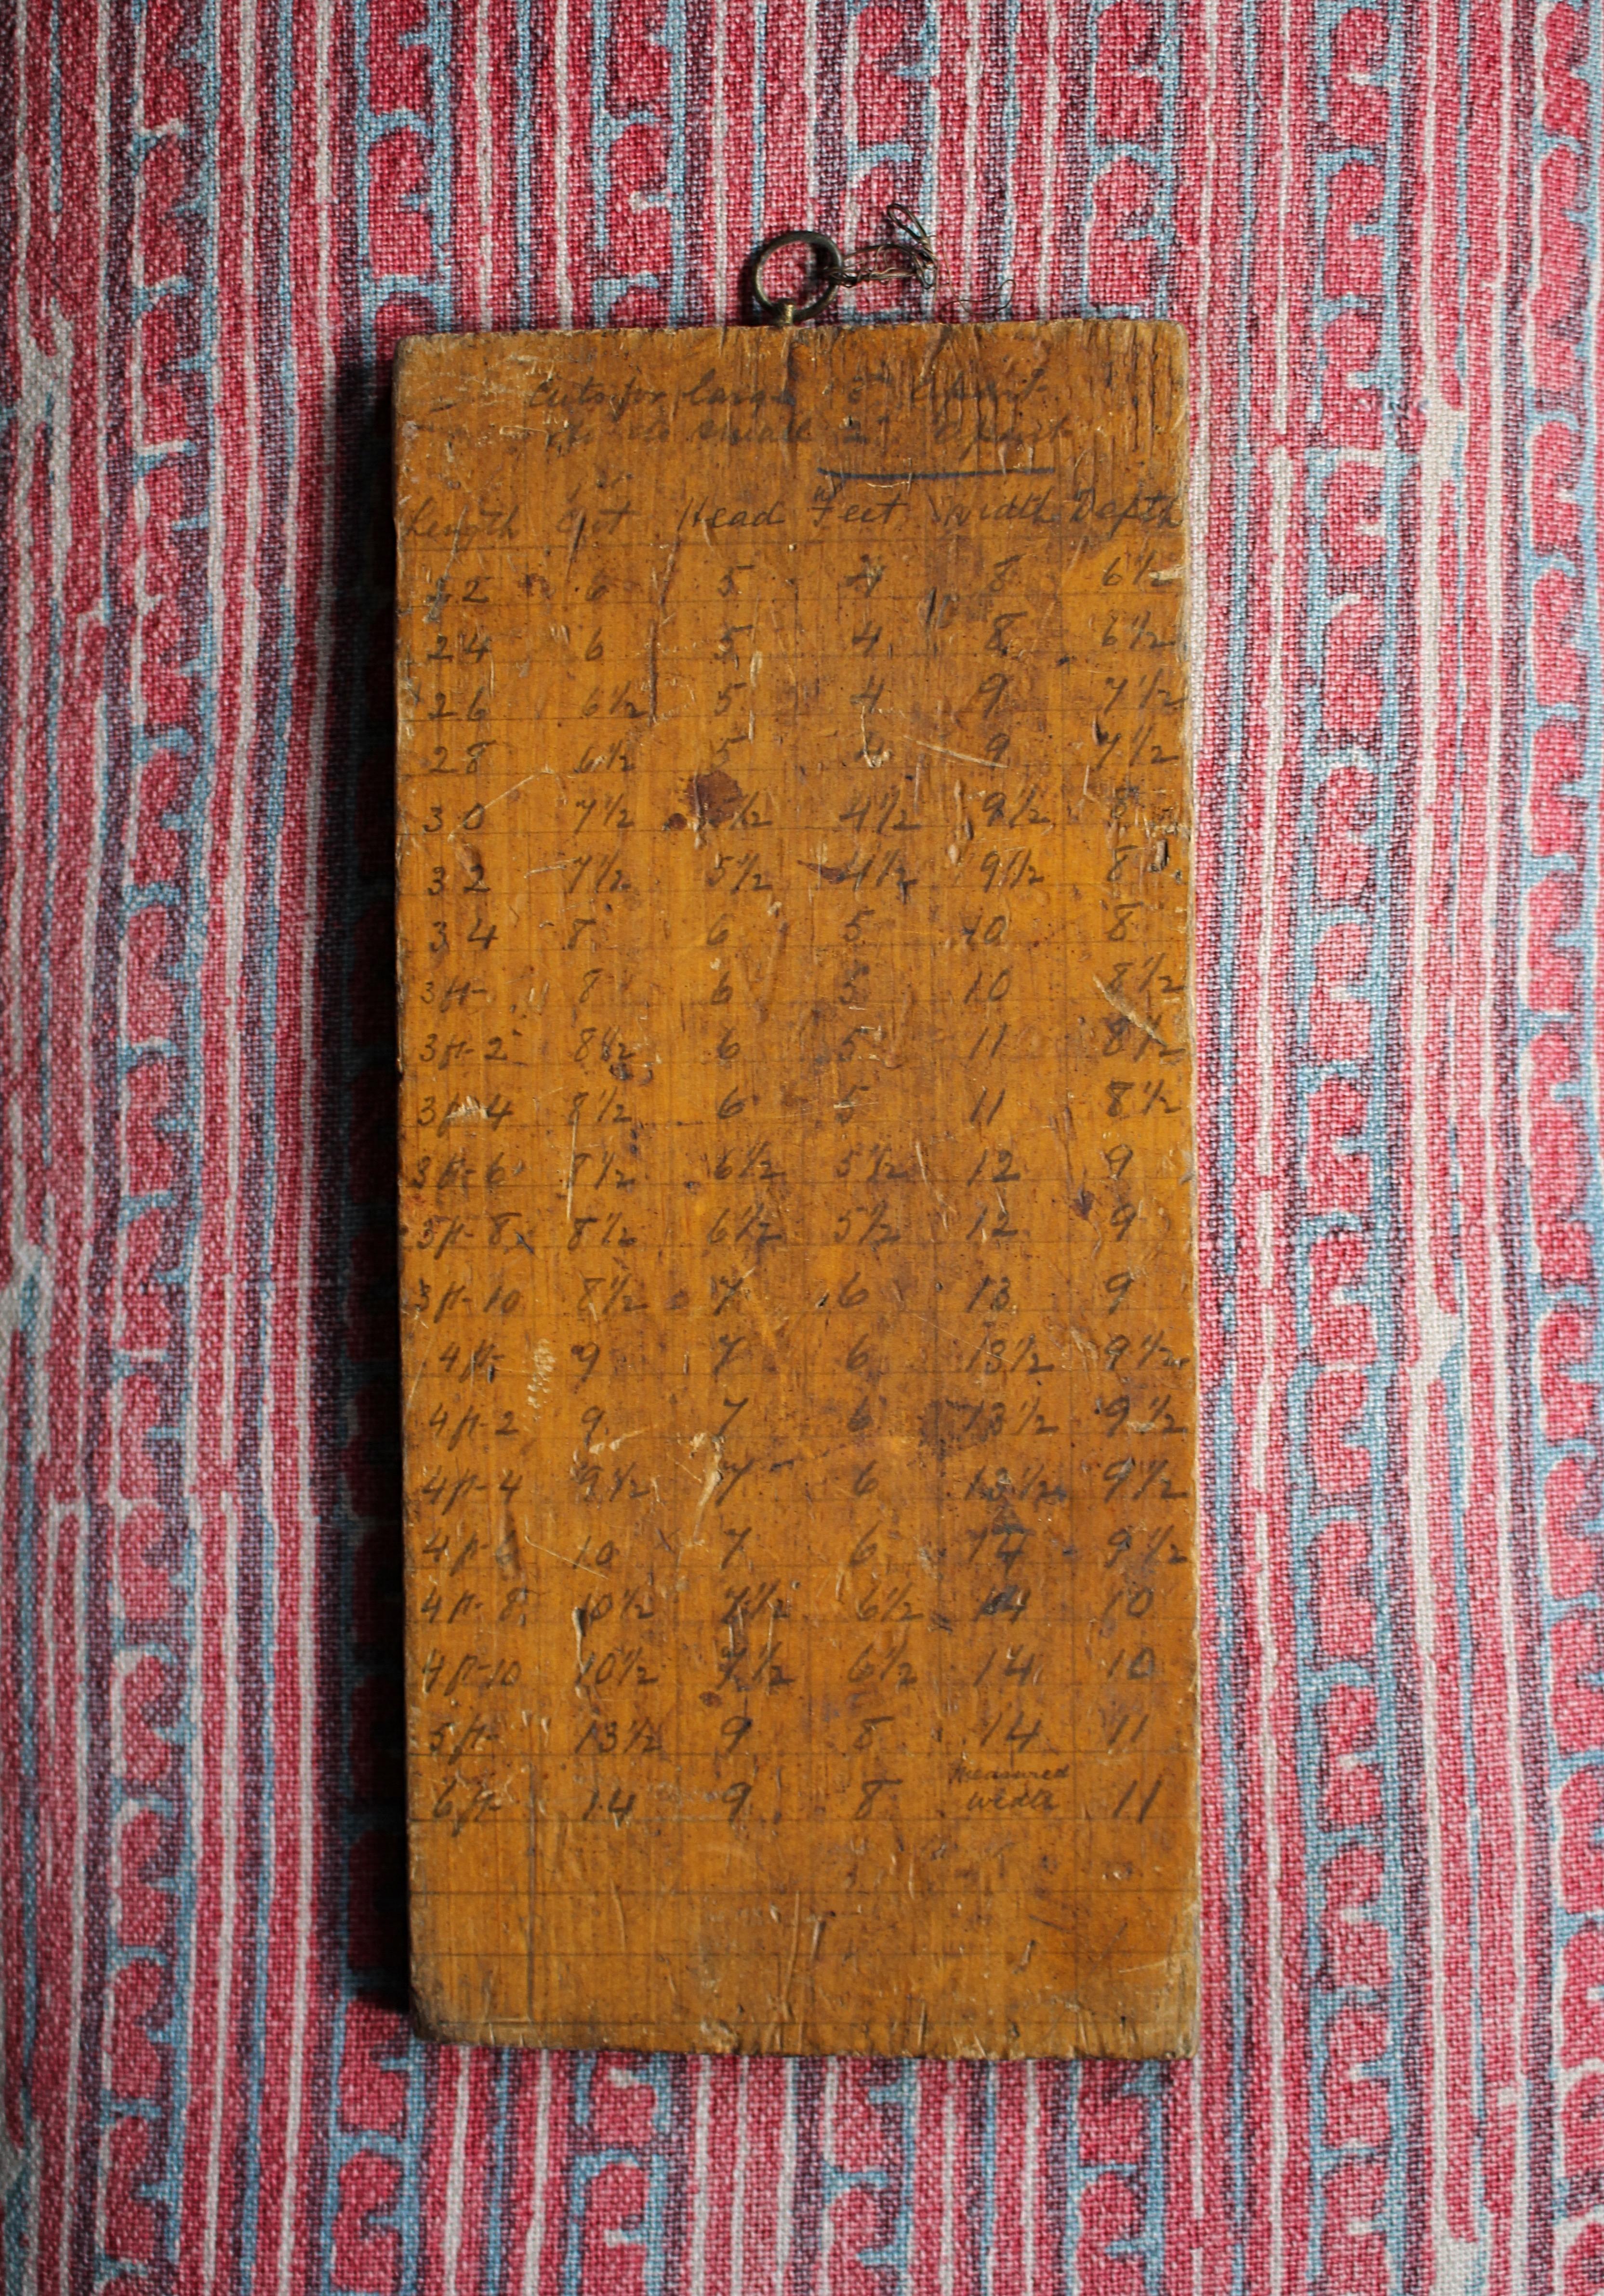 Cuts for large 5" apart
do do small 2" apart
Length Cut Head Feet Width Depth
22 6 5 4 8 6 1/2
24 6 5 4 8 6 1/2
26 6 1/2 5 4 9 7 1/2
28 6 1/2 5 4 9 7 1/2
30 7 1/2 5 1/2 4 1/2 9 1/2 8
32 7 1/2 5 1/2 4 1/2 9 1/2 8
34 8 6 5 10 8
3ft- 8 6 5 10 8 1/2
3ft-2 8 1/2 6 5 11 8 1/2
3ft-4 8 1/2 6 5 11 8 1/2
3ft-6 8 1/2 6 1/2 5 1/2 12 9
3ft-8 8 1/2 6 1/2 5 1/2 12 9
3ft-10 8 1/2 7 6 13 9
4ft- 9 7 6 13 1/2 9 1/2
4ft-2 9 7 6 13 1/2 9 1/2
4ft-4 9 1/2 7 6 13 1/2 9 1/2
4ft-6 10 7 6 14 9 1/2
4ft-8 10 1/2 7 1/2 6 1/2 14 10
4ft-10 10 1/2 7 1/2 6 1/2 14 10
5ft- 13 1/2 9 8 14 11
6ft- 14 9 8 Measured width 11